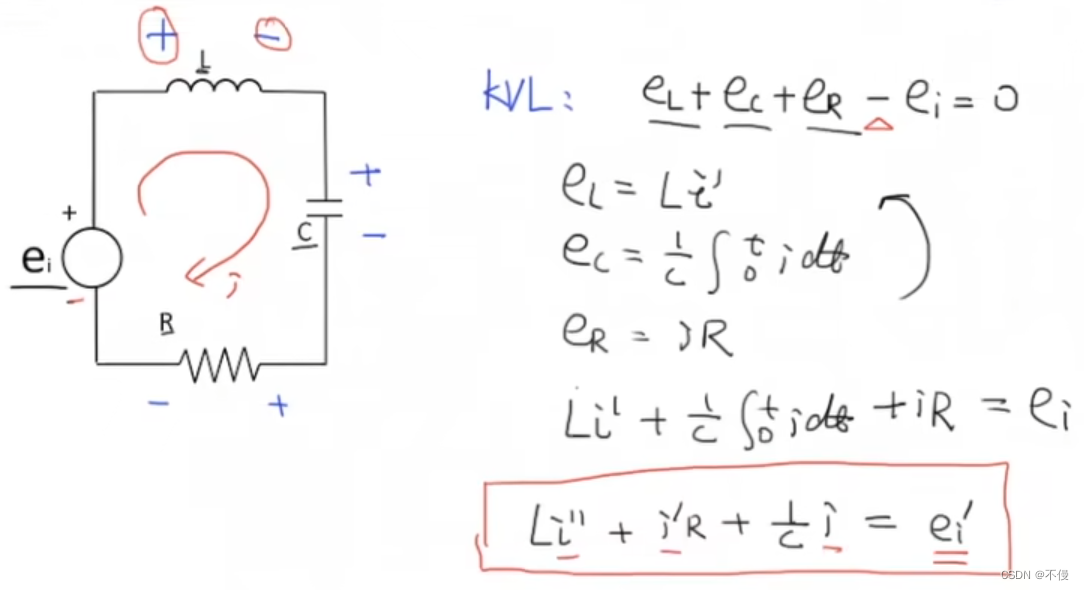 + -
L
kVL: eL + eC + eR - ei = 0
eL = Li'
+
C
-
eC = 1/C ∫0t i dt
+
ei
-
i
R
eR = iR
- +
Li' + 1/C ∫0t i dt + iR = ei
Li'' + i'R + 1/C i = ei'
CSDN @不傻